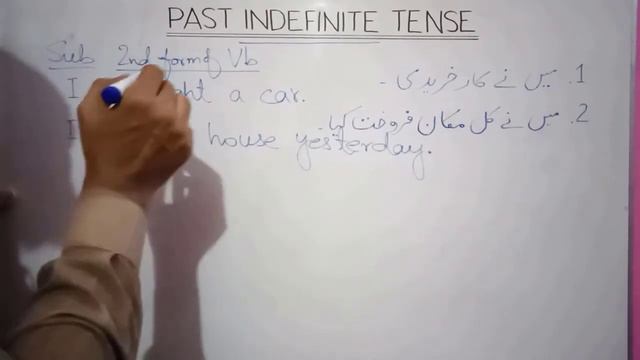 PAST INDEFINITE TENSE
Sub 2nd form of Vb
I a car.
1. میں نے کار خریدی -
I house yesterday.
2. میں نے کل مکان فروخت کیا۔